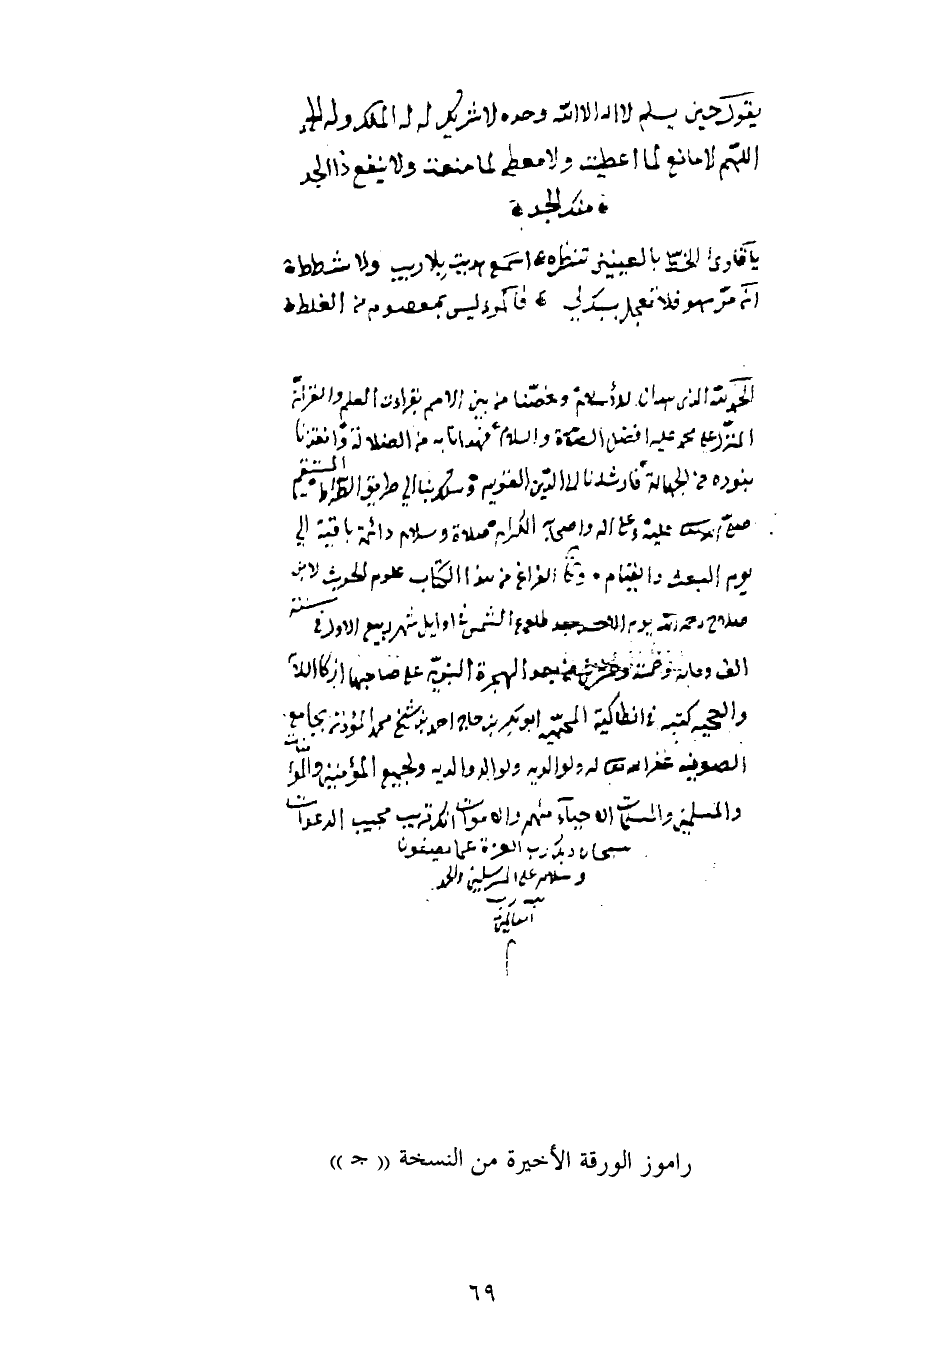 يقول حين يسلم لا اله الا الله وحده لا شريك له له الملك وله الحمد
اللهم لا مانع لما اعطيت ولا معطي لما منعت ولا ينفع ذا الجد
منك الجد
يا قارئ الخط بالعينين تنظره اسمع بلا ريب ولا شططا
ان مر سهو فلا تعجل ليس بمعصوم من الغلطا
الحمد لله الذي هدانا للأسلام وخصنا من بين الامم بقراءت العلم والقرآن
المنزل على محمد عليه افضل الصلاة والسلام فهدانا به من الضلالة وانقذنا
بنوره من الجهالة فارشدنا الى الدين القويم وسلك بنا الي طريق الصراط المستقيم
صلى الله عليه وعلى اله واصحابه الكرام صلاة وسلام دائمة باقية الي
يوم البعث والقيام وكان الفراغ من هذا الكتاب علوم الحديث لابن
صلاح رحمه الله يوم الاحد بعد طلوع الشمس في اوايل شهر ربيع الاول في سنة
الف ومايه وخمسة وعشرين من بعد الهجرة النبوية على صاحبها
والتحية كتبه في انطاكية المحمية ابو بكر بن حاج احمد بن شيخ محمد المؤذن بجامع
الصوفية غفر الله له ولوالديه ولوالد والديه ولجميع المؤمنين والمؤمنات
والمسلمين والمسلمات الاحياء منهم والاموات انك قريب مجيب الدعوات
سبحان ربك رب العزة عما يصفون
وسلام على المرسلين والحمد
لله رب
العالمين
م
راموز الورقة الأخيرة من النسخة (( جـ ))
٦٩